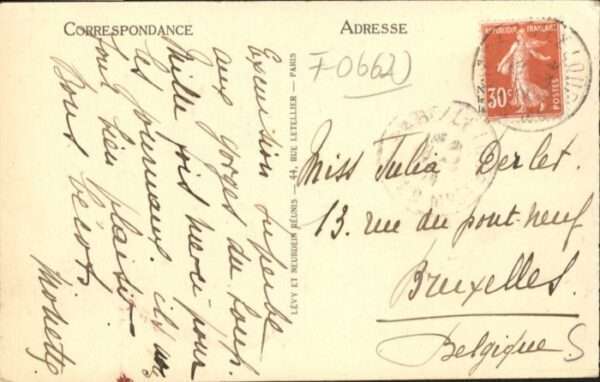 CORRESPONDANCE
ADRESSE
Excursion superbe
aux gorges du Loup.
Mille fois merci pour
les journaux. ils nous
font bien plaisir
Bons bécots
Minette
LEVY ET NEURDEIN RÉUNIS — 44, RUE LETELLIER — PARIS
F0662
RÉPUBLIQUE FRANÇAISE
30c
POSTES
Miss Julia Derlet.
13. rue du pont neuf
Bruxelles.
Belgique